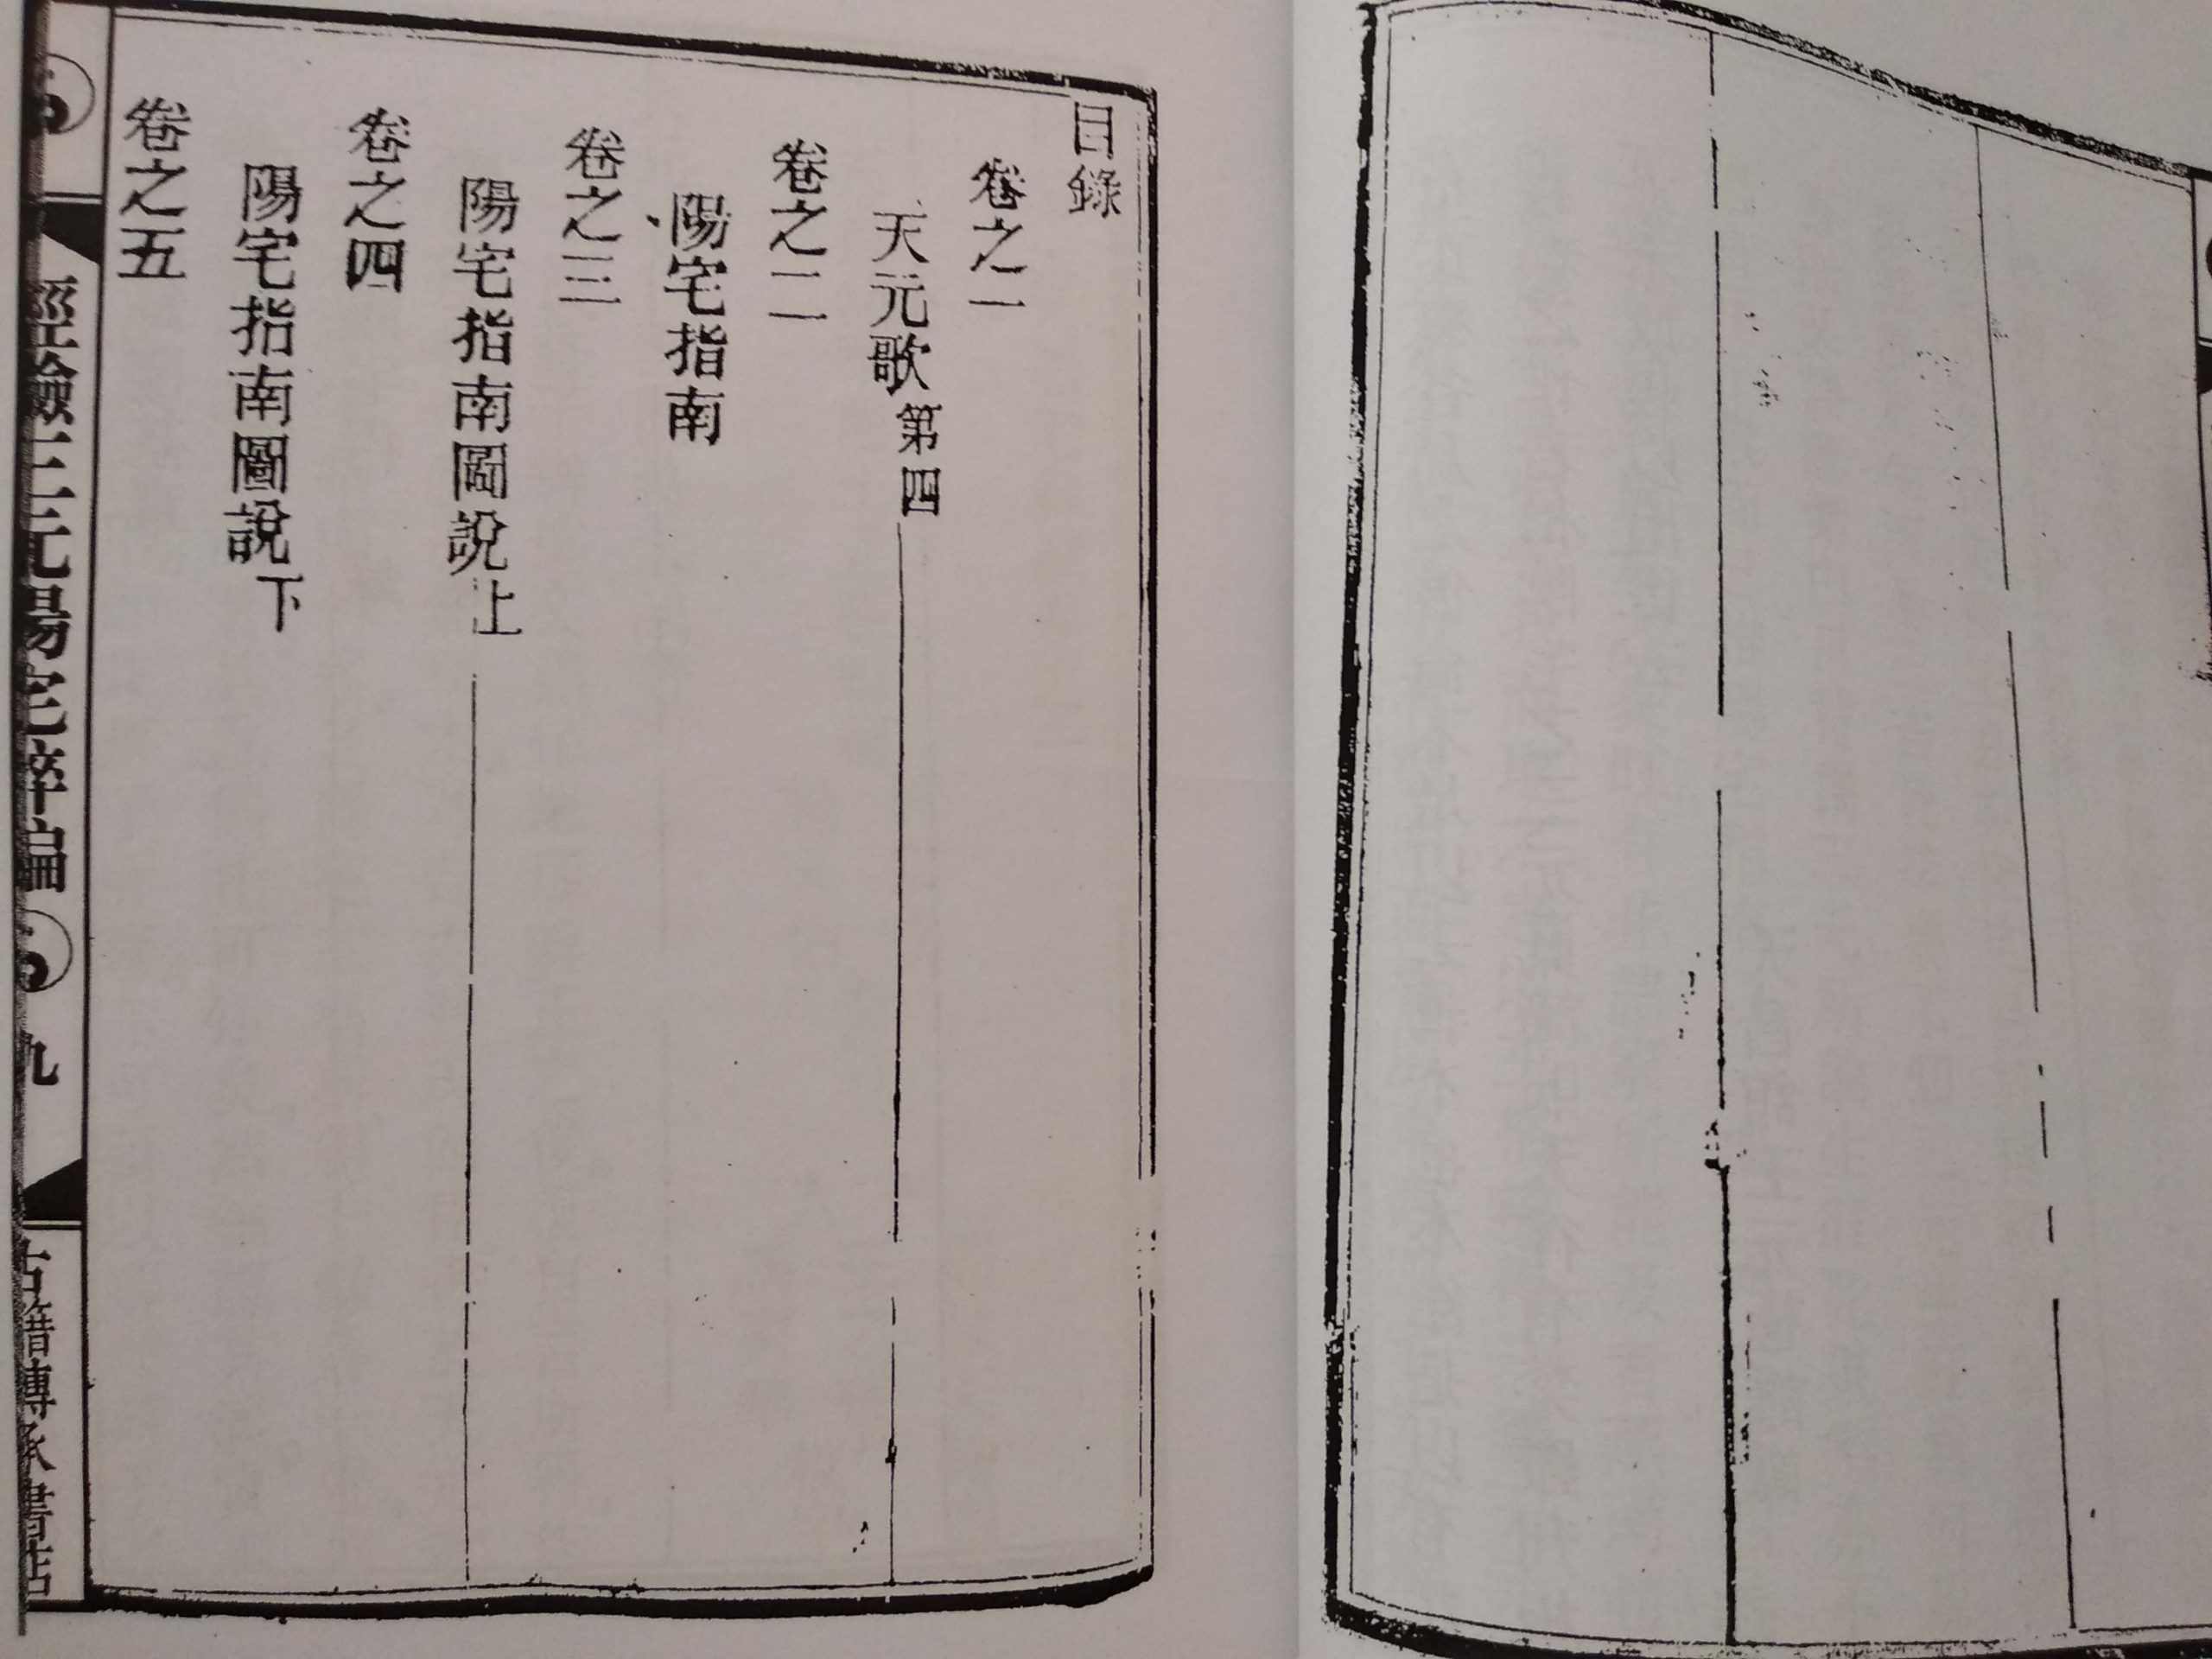 目錄
卷之一
天元歌第四
卷之二
陽宅指南
卷之三
陽宅指南圖說上
卷之四
陽宅指南圖說下
卷之五
經驗三元陽宅萃編
九
古籍傳承書店